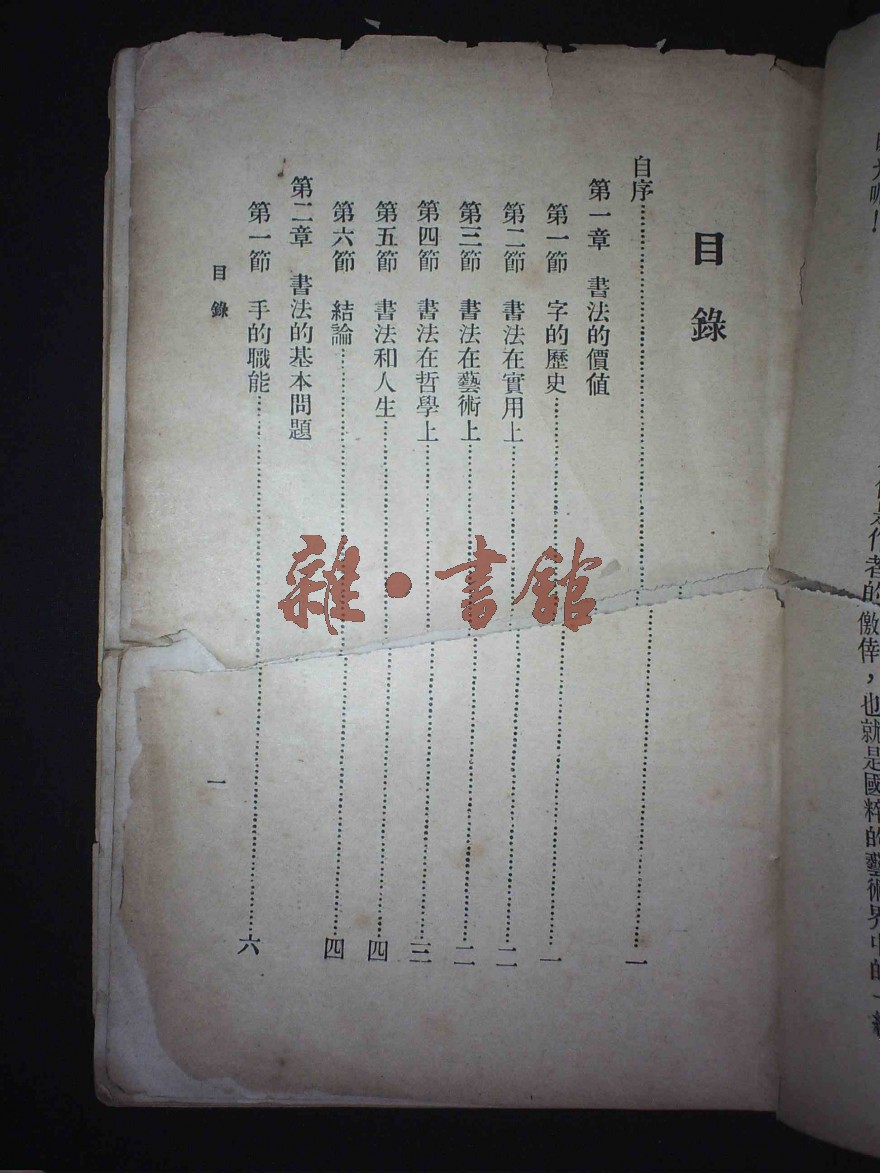 因大喔！
目錄
自序⋯⋯⋯⋯⋯⋯⋯⋯⋯⋯一
第一章　書法的價值
第一節　字的歷史⋯⋯⋯⋯⋯⋯⋯⋯⋯⋯一
第二節　書法在實用上⋯⋯⋯⋯⋯⋯⋯⋯⋯⋯二
第三節　書法在藝術上⋯⋯⋯⋯⋯⋯⋯⋯⋯⋯二
第四節　書法在哲學上⋯⋯⋯⋯⋯⋯⋯⋯⋯⋯三
第五節　書法和人生⋯⋯⋯⋯⋯⋯⋯⋯⋯⋯四
第六節　結論⋯⋯⋯⋯⋯⋯⋯⋯⋯⋯四
第二章　書法的基本問題
第一節　手的職能⋯⋯⋯⋯⋯⋯⋯⋯⋯⋯六
目錄
一
雜·書館
作者的儌倖，也就是國粹的藝術界中的一